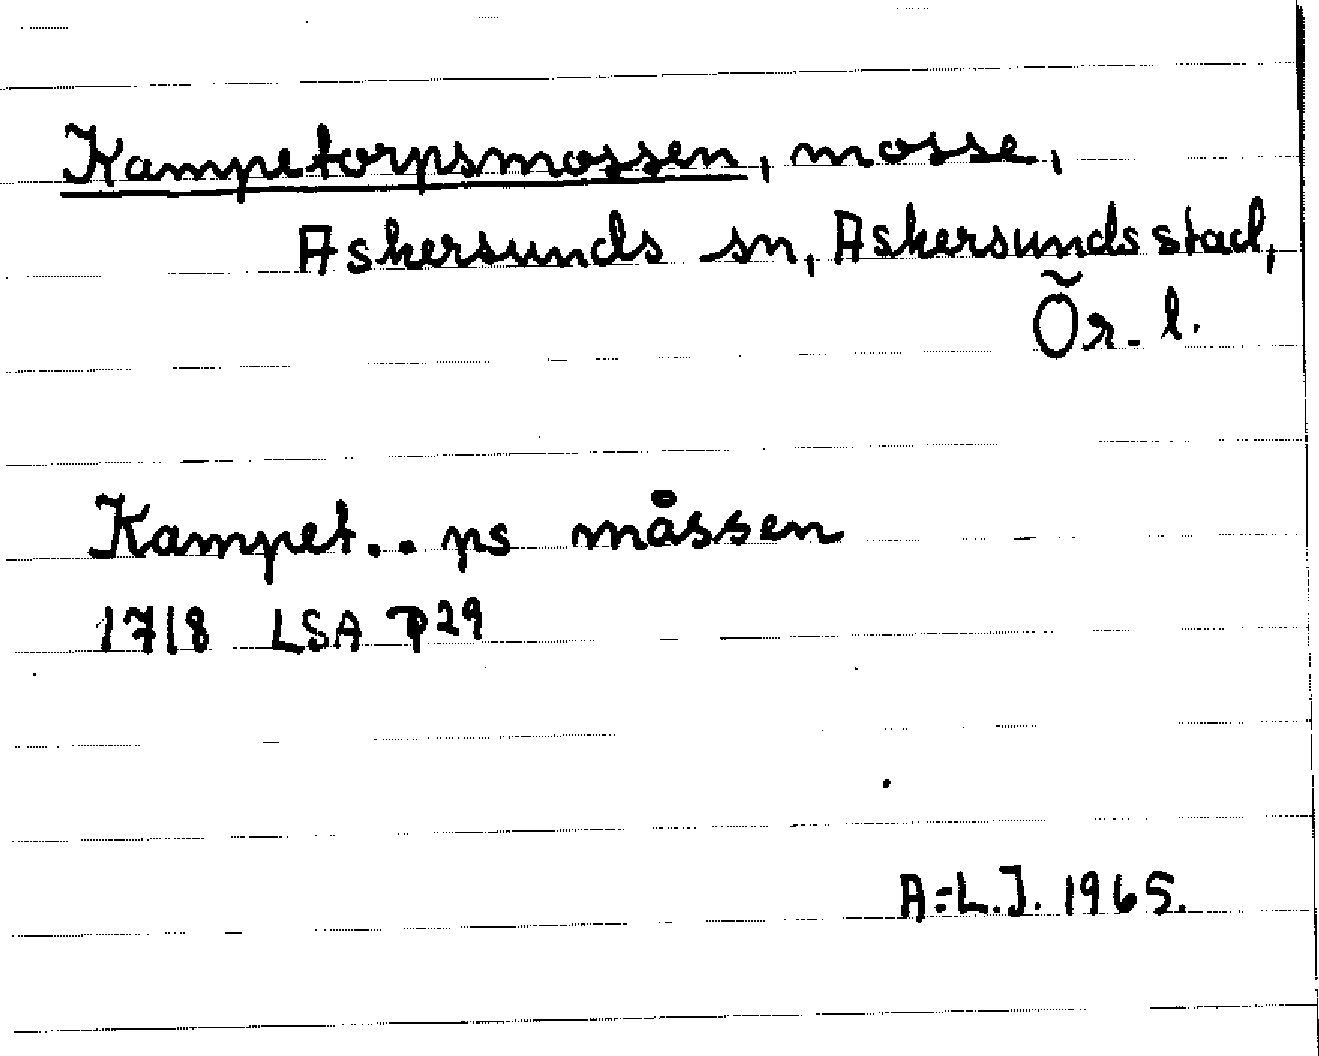 Kampetorpsmossen, mosse,
Askersunds sn, Askersunds stad,
Ör. l.
Kampet.. ps måssen
1718 LSA P29
A-L.J. 1965.